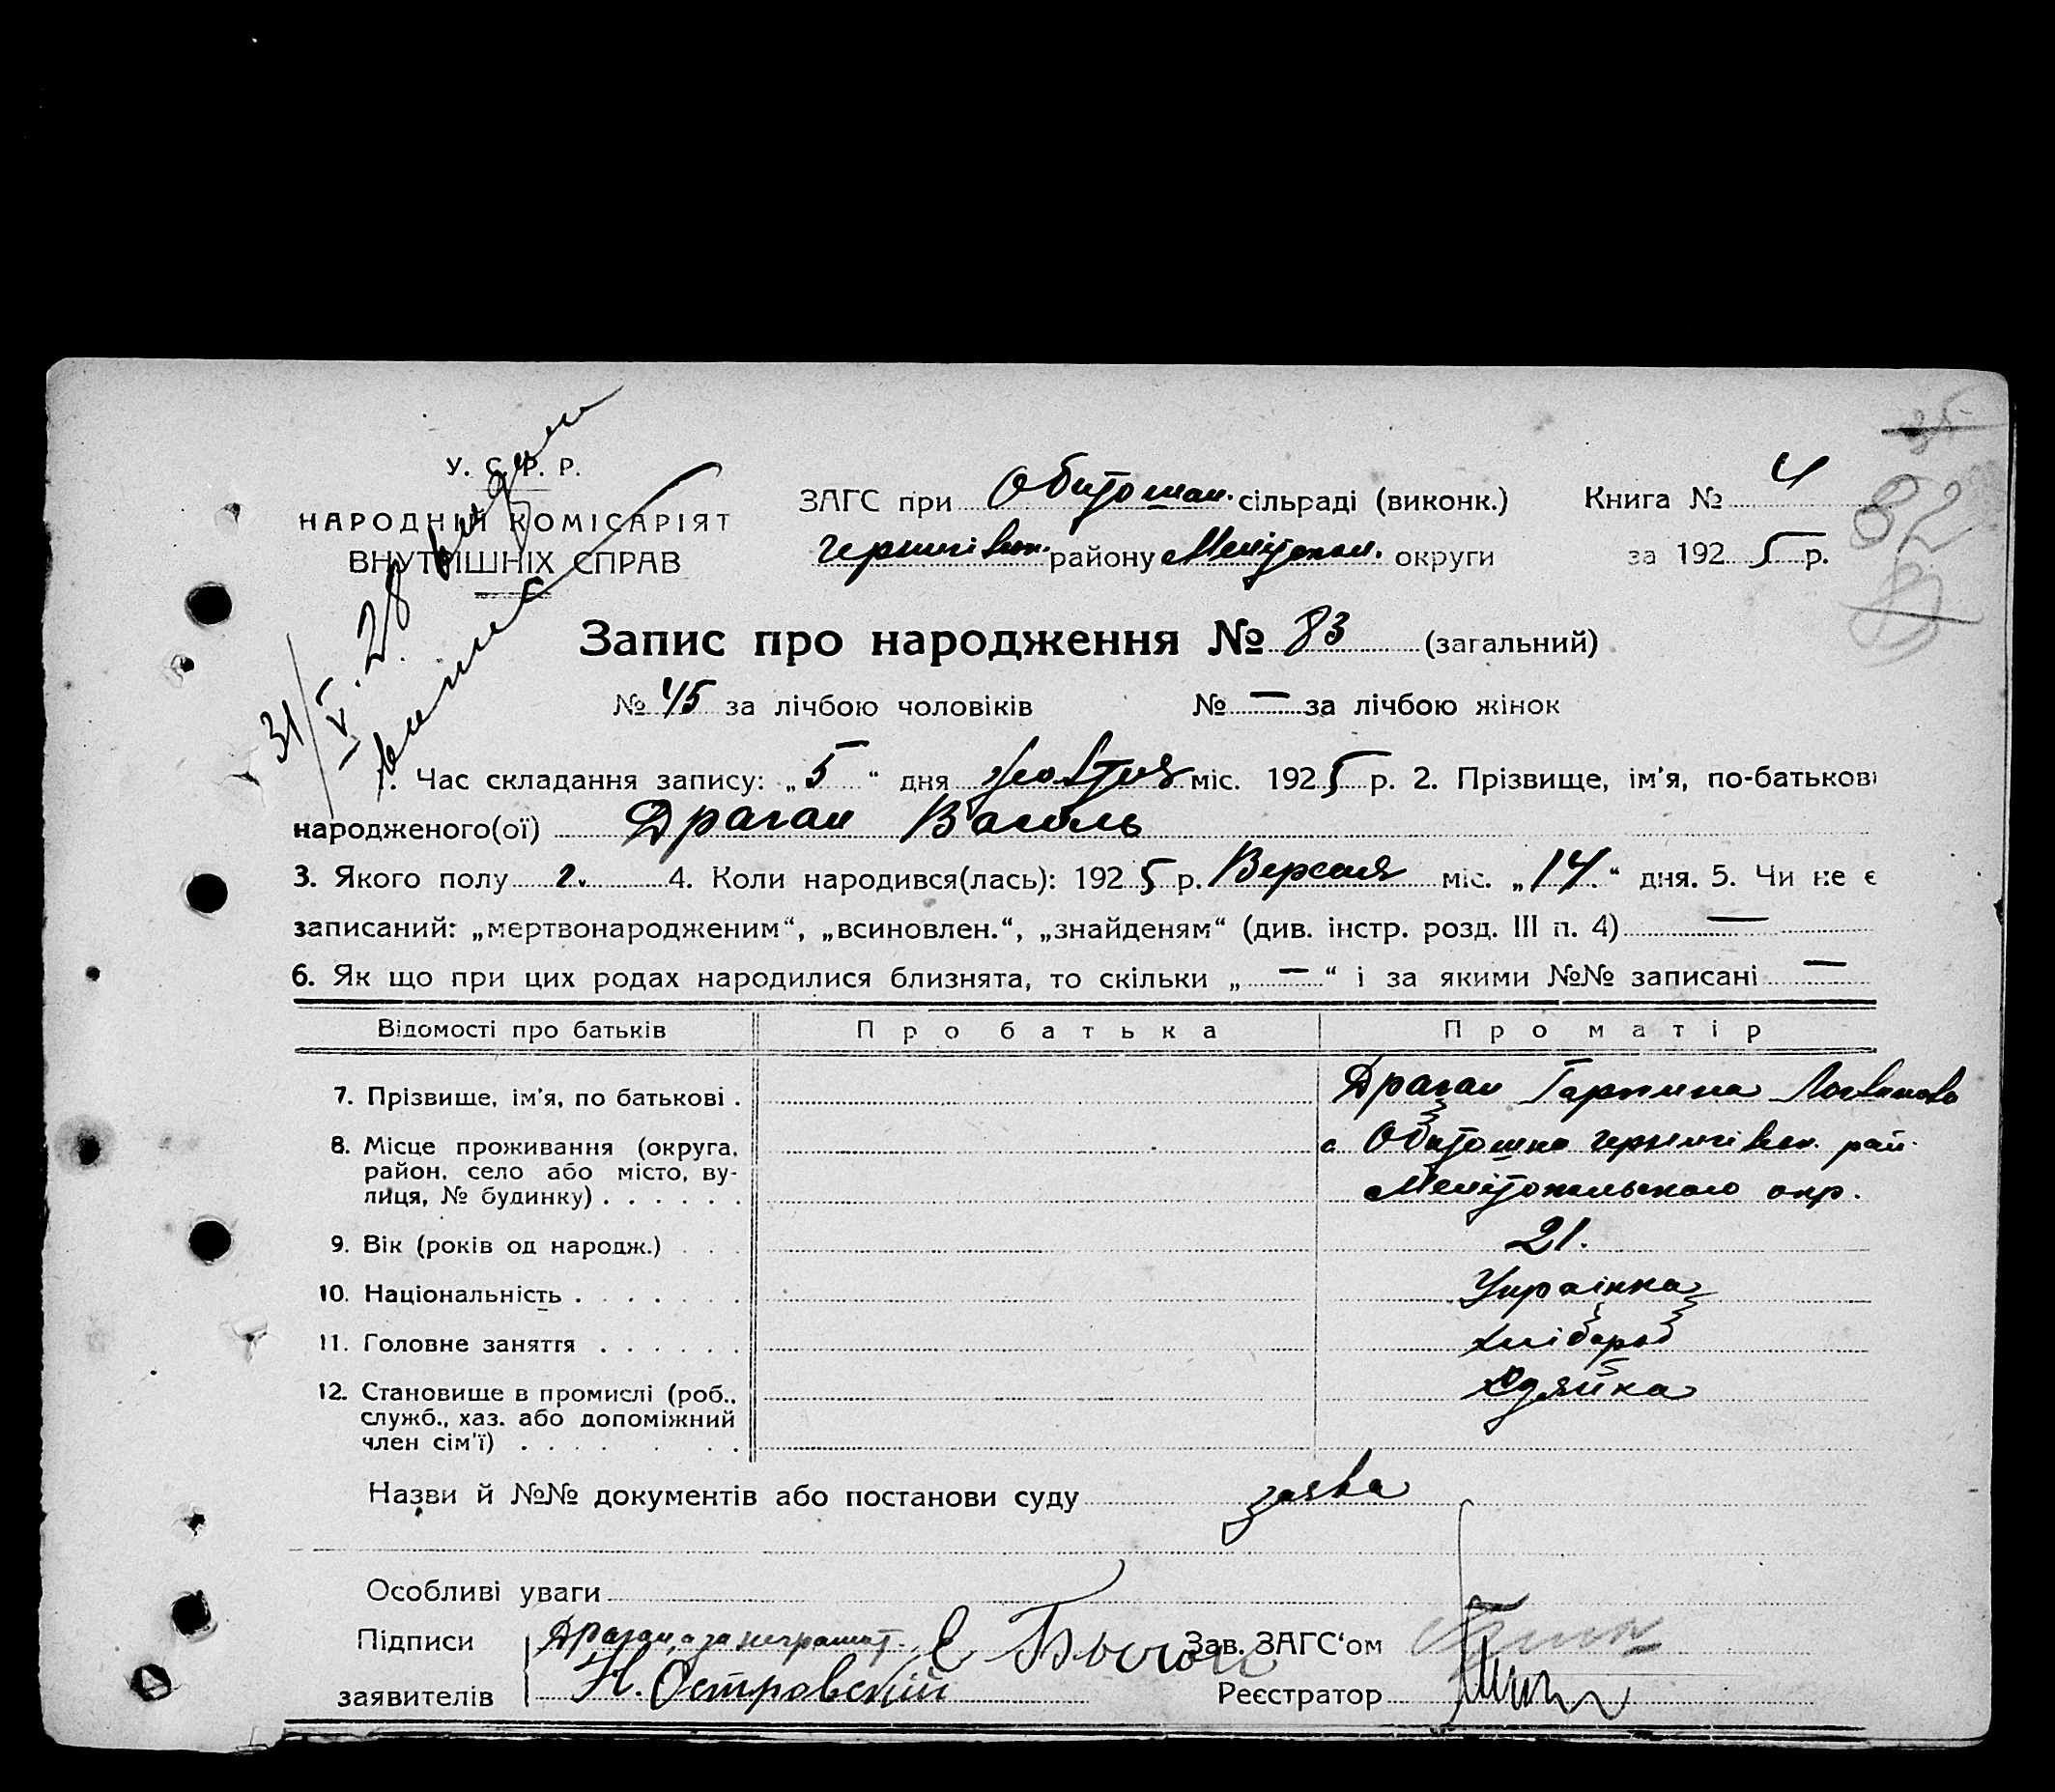 31/V.28 видан
виписс
35
82
У. С. Р. Р.
НАРОДНІЙ КОМІСАРІЯТ
ВНУТРІШНІХ СПРАВ
ЗАГС при Обиточан. сільраді (виконк.) Книга № 4
Чернигівск. району Меліτопол. округи за 1925 р.
Запис про народження № 83 (загальний)
№ 45 за лічбою чоловіків № — за лічбою жінок
1. Час складання запису: „5“ дня жовтня міс. 1925 р. 2. Прізвище, ім'я, по-батькові
народженого(ої) Драган Василь
3. Якого полу ч. 4. Коли народився(лась): 1925 р. Версня міс. „14.“ дня. 5. Чи не є
записаний: „мертвонародженим“, „всиновлен.“, „знайденям“ (див. інстр. розд. III п. 4) —
6. Як що при цих родах народилися близнята, то скільки „—“ і за якими №№ записані —
Відомості про батьків Про батька Про матір
7. Прізвище, ім'я, по батькові . Драган Гарпина Логвинова
8. Місце проживання (округа, с. Обиточна Чернигівск. рай.
район, село або місто, ву-
лиця, № будинку) . . . . . . Мелітопольського окр.
9. Вік (років од народж.) . . . 21.
10. Національність . . . . . . . Украінка
11. Головне заняття . . . . . . хлібороб
12. Становище в промислі (роб., хозяйка
служб., хаз. або допоміжний
член сім'ї) . . . . . . .
Назви й №№ документів або постанови суду заява
Особливі уваги
Підписи Драган, а за неграмот. Зав. ЗАГС'ом
заявителів Н. Островский Реєстратор